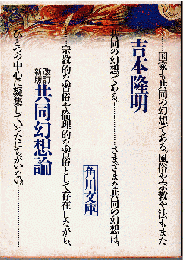 国家は共同の幻想である。風俗や宗教や法もまた
共同の幻想である。
さまざまな共同の幻想は、
吉本隆明
宗教的な習俗や、倫理的な習俗として存在しながら、
ひとつの中心に凝集していったにちがいない。
改訂
新版
共同幻想論
角川文庫